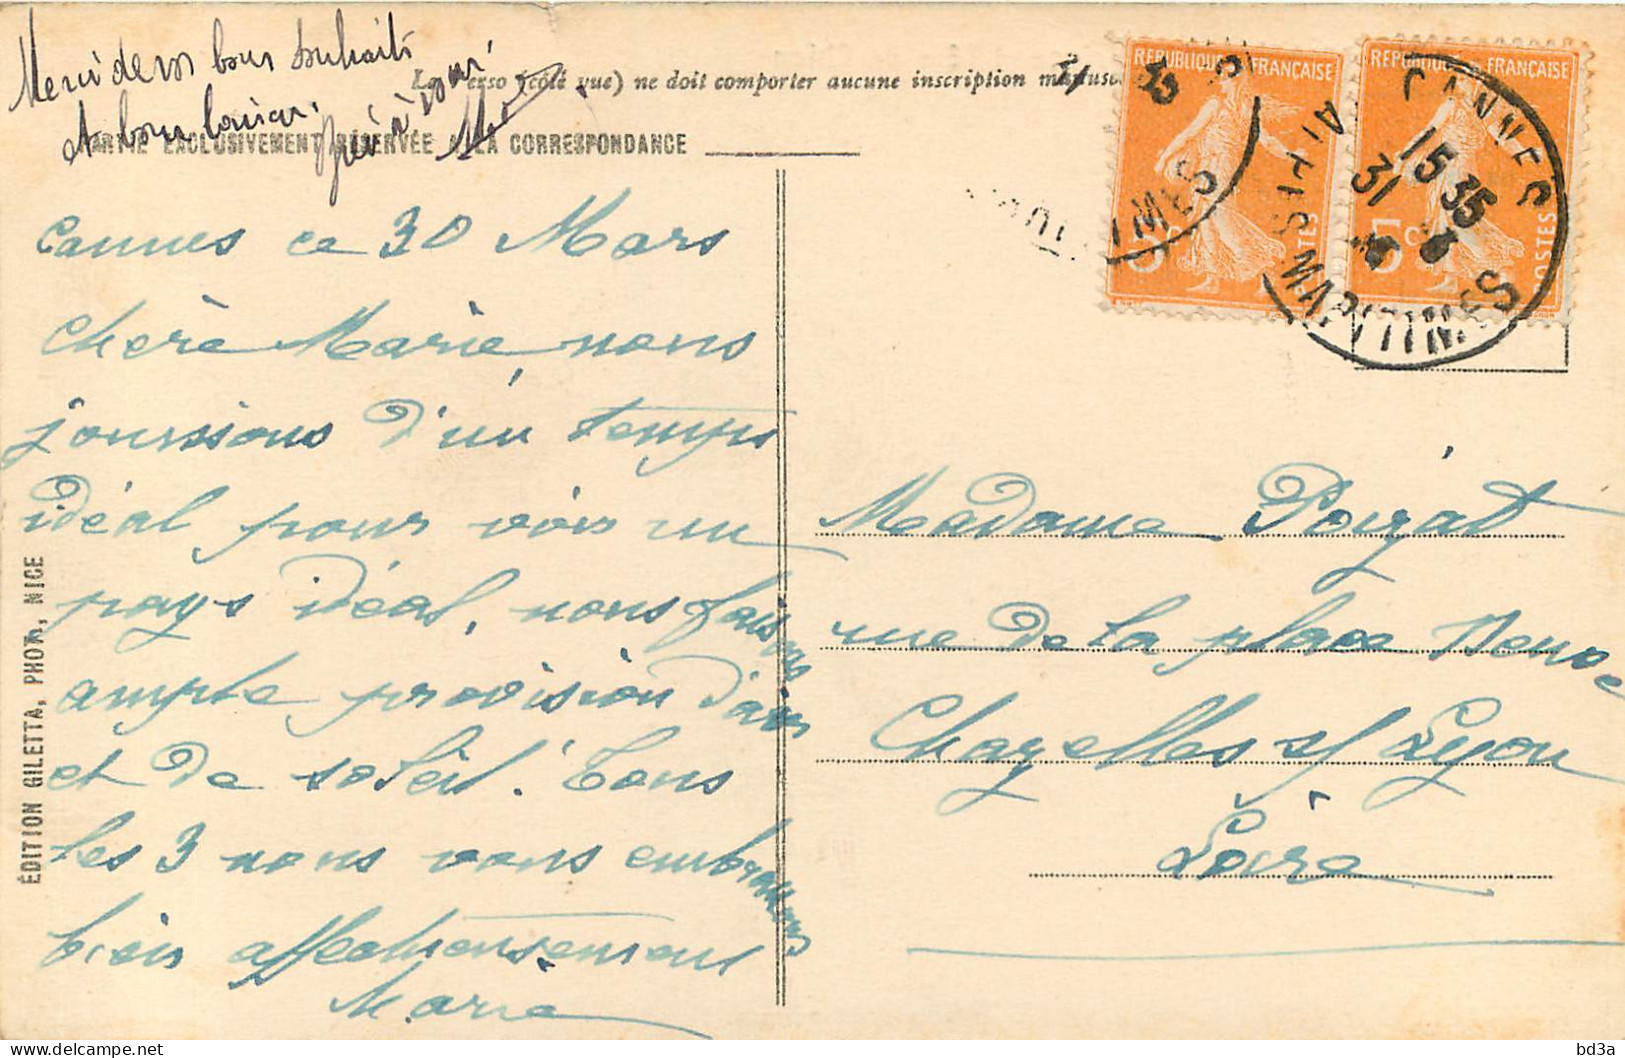 Merci de vos bons souhaits
et bon
à vous
Le verso (côté vue) ne doit comporter aucune inscription manusc
PARTIE EXCLUSIVEMENT RÉSERVÉE A LA CORRESPONDANCE
Cannes ce 30 Mars
Chère Marie nous
jouissons d'un temps
idéal pour voir un
pays idéal, nous faisons
ample provision d'air
et de soleil. Tous
les 3 nous vous embrassons
bien affectueusement
Marie
ÉDITION GILETTA, PHOT., NICE
RÉPUBLIQUE FRANÇAISE
5c
POSTES
RÉPUBLIQUE FRANÇAISE
5c
POSTES
CANNES
15 35
31
ALPES MARITIMES
Madame Poizat
rue de la place Neuve
Chazelles s/ Lyon
Loire
bd3a